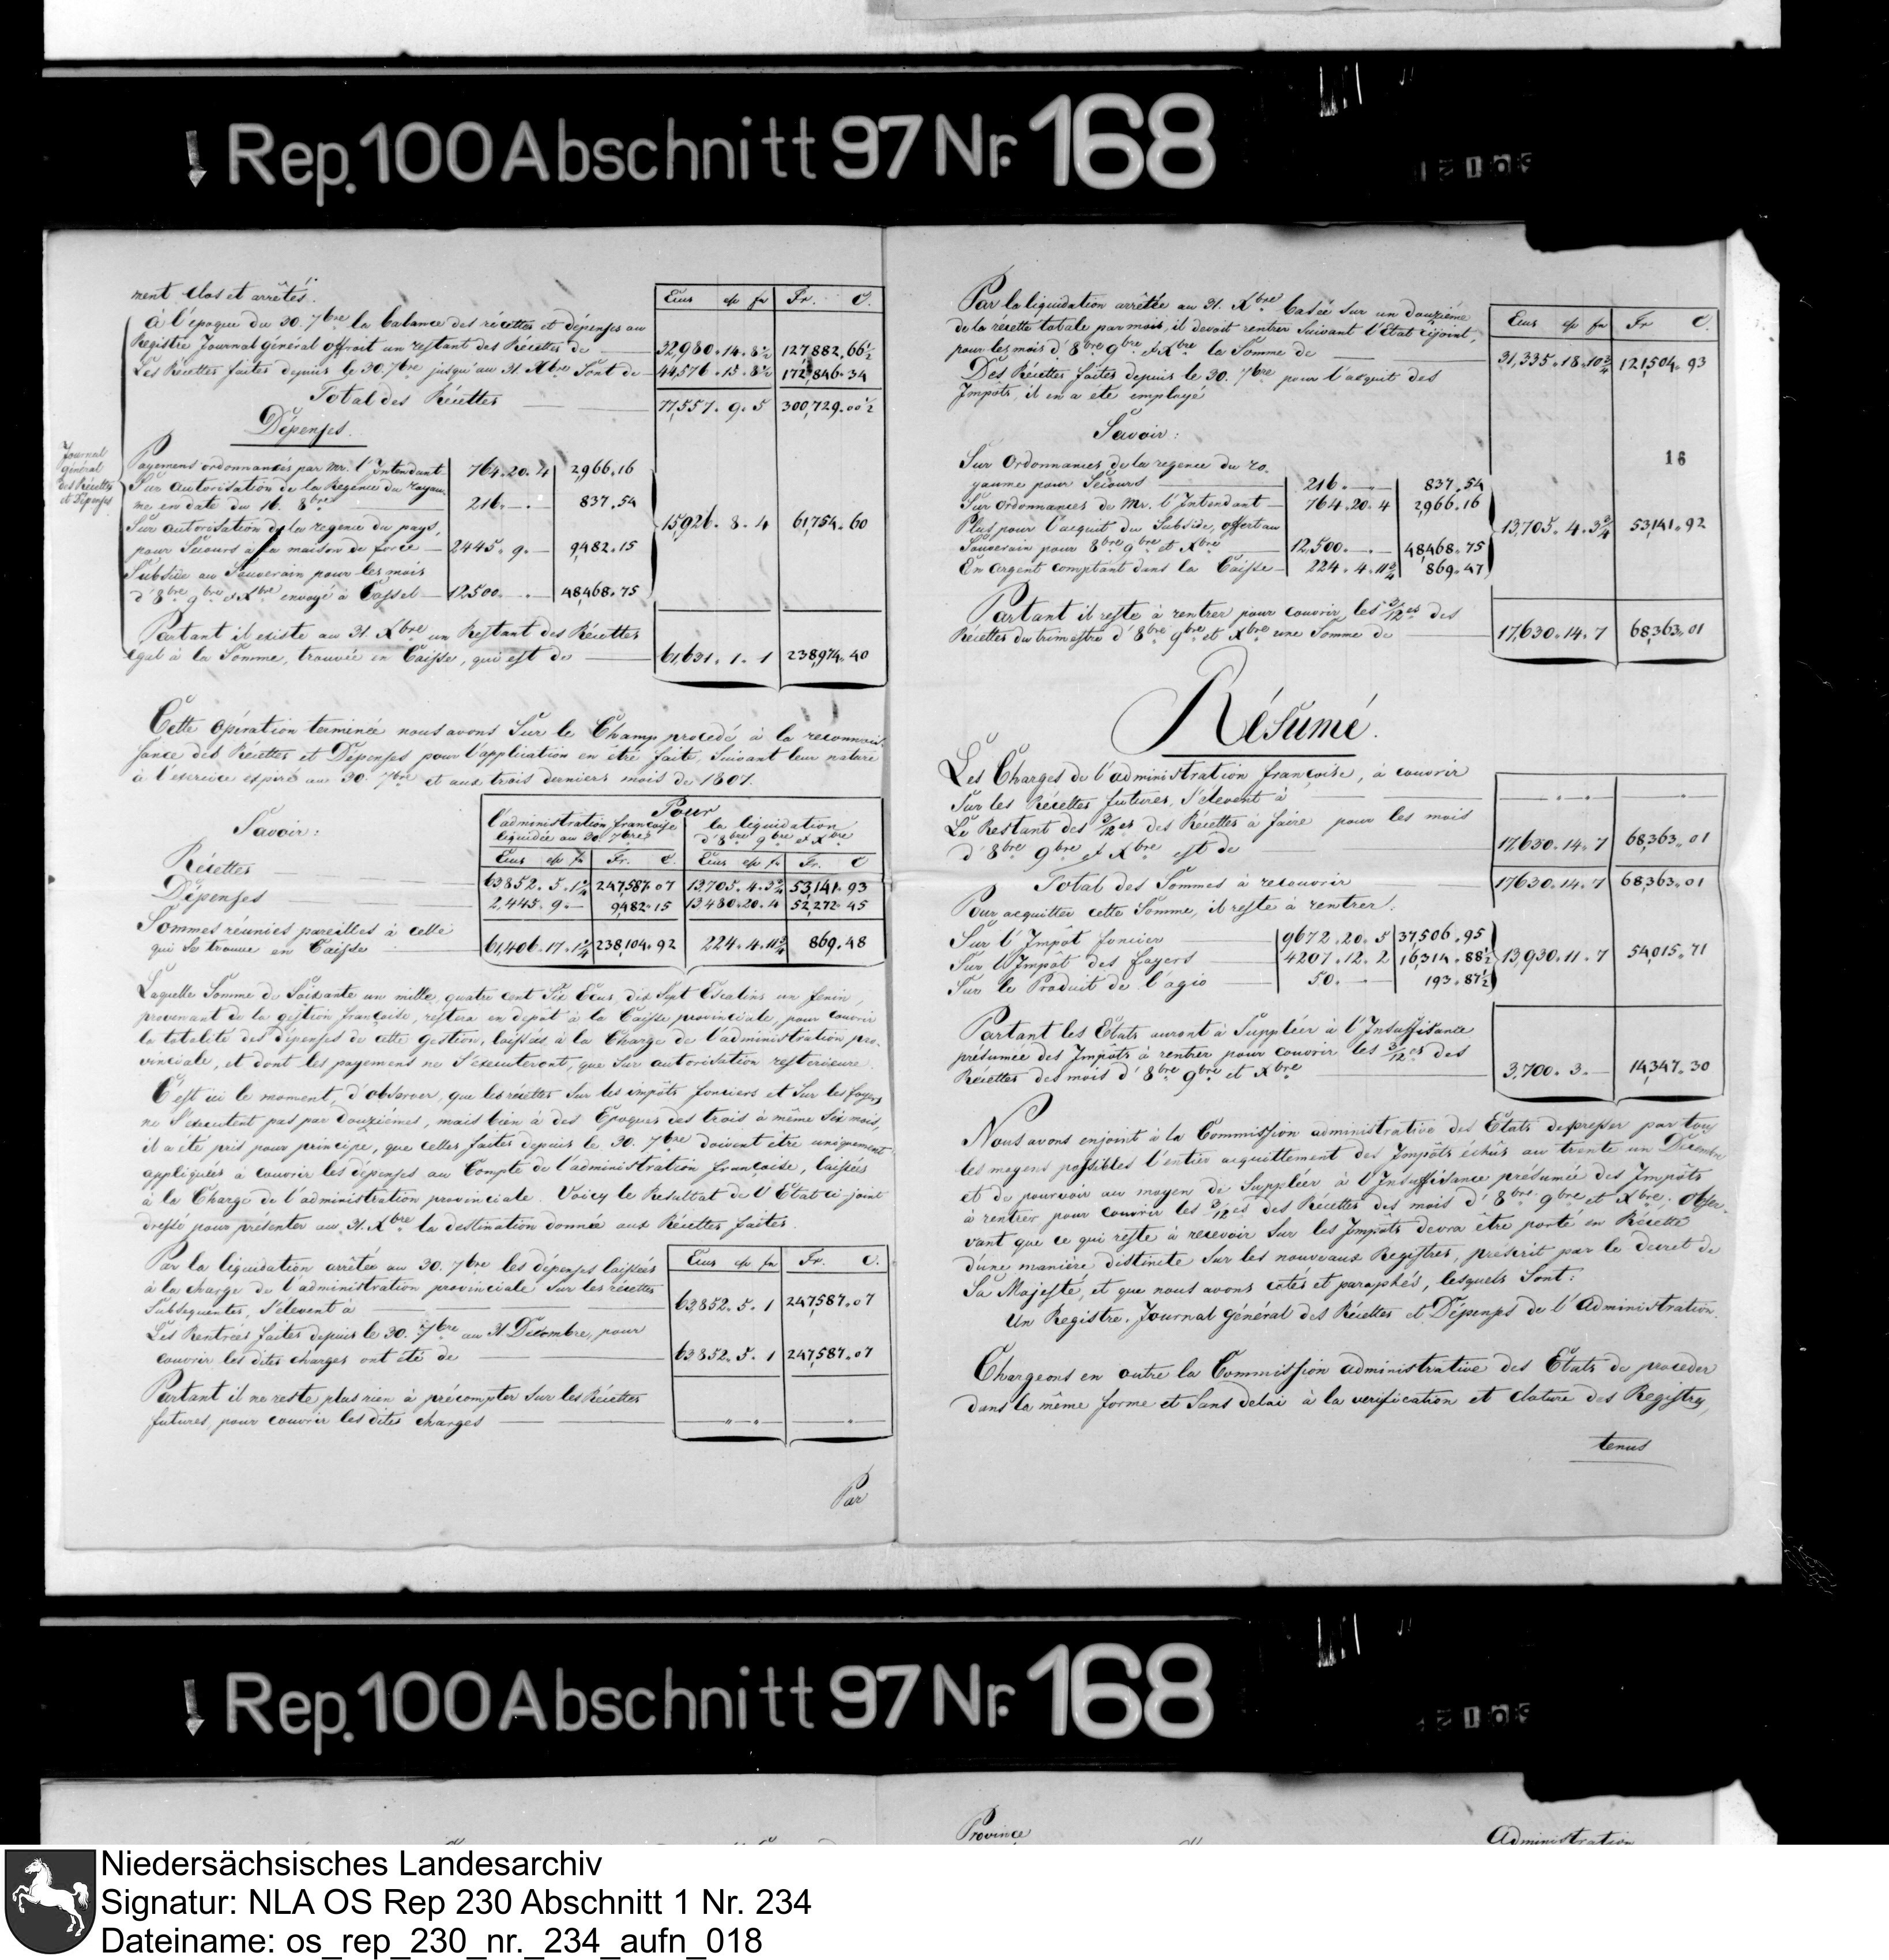 Rep. 100 Abschnitt 97 Nr. 168
ment clos et arrêtés.
Ecus  Fr. C.
à l'époque du 30. 7bre la balance des récettes et dépenses au
Registre Journal général offroit un restant des Récettes de 32,980. 14. 8½ 127,882,66½
Les Récettes faites depuis le 30. 7bre jusqu'au 31 Xbre sont de 44,576. 15. 8½ 172,846. 34
Total des Récettes 77,557. 9. 5 300,729. 00½
Dépenses.
Journal
général
des Récettes
et Dépenses
Payemens ordonnancés par Mr. l'Intendant 764. 20. 4 2,966. 16
Sur autorisation de la Regence du royau-
me en date du 16. 8bre 216. 837. 54
Sur autorisation de la regence du pays,
pour Secours à la maison de force 2445. 9. 9,482. 15
15,926. 8. 4 61,754. 60
Subside au Souverain pour les mois
d'8bre 9bre et Xbre envoyé à Cassel 12,500. 48,468. 75
Partant il existe au 31 Xbre un Restant des Récettes
égal à la Somme, trouvée en Caisse, qui est de 61,631. 1. 1 238,974. 40
Cette opération terminée nous avons Sur le Champ procédé à la reconnais-
sance des Récettes et Dépenses pour l'application en être faite, Suivant leur nature
à l'exercice expiré au 30. 7bre et aux trois derniers mois de 1807.
Savoir:
Pour
l'administration française
liquidée au 30. 7bre
la liquidation
d'8bre 9bre et Xbre
Ecus Fr. C. Ecus Fr. C
Récettes 63852. 5. 1¾ 247,587. 07 13,705. 4. 3¾ 53,141. 93
Dépenses 2,445. 9. 9,482. 15 13480. 20. 4 52,272. 45
Sommes réunies pareilles à celle
qui se trouve en Caisse 61,406. 17. 1¾ 238,104. 92 224. 4. 11¾ 869. 48
Laquelle Somme de Soixante un mille, quatre cent Six Ecus, dix Sept Escalins un fenin,
provenant de la gestion française, restera en depot à la Caisse provinciale, pour couvrir
la totalité des dépenses de cette gestion, laissées à la Charge de l'administration pro-
vinciale, et dont les payemens ne S'executeront, que Sur autorisation
C'est ici le moment, d'observer, que les récettes Sur les impôts fonciers et Sur les foyers
ne S'executent pas par douzièmes, mais bien à des Epoques des trois à même Six mois,
il a été pris pour principe, que celles faites depuis le 30. 7bre doivent être uniquement
appliquées à couvrir les dépenses au Compte de l'administration française, laissées
à la Charge de l'administration provinciale. Voicy le Resultat de l'Etat ci joint
dressé pour présenter au 31. Xbre la destination donnée aux Récettes faites.
Ecus Fr. C.
Par la liquidation arrêtée au 30. 7bre les dépenses laissées
à la charge de l'administration provinciale Sur les récettes
Subsequentes, S'élevent à 63852. 5. 1 247,587. 07
Les Rentrées faites depuis le 30. 7bre au 31 Decembre, pour
couvrir les dites charges ont été de 63852. 5. 1 247,587. 07
Partant il ne reste plus rien à précompter Sur les Récettes
futures, pour couvrir les dites charges
Par
Par la liquidation arrêtée au 31. Xbre basée Sur un douzième
de la récette totale par mois, il devoit rentrer Suivant l'Etat cijoint,
pour les mois d'8bre 9bre et Xbre la Somme de 31,335. 18. 10¾ 121,504. 93
Ecus Fr C.
Des Récettes faites depuis le 30. 7bre pour l'acquit des
Impôts, il en a été employé
Savoir:
16
Sur Ordonnances de la regence du ro-
yaume pour Secours 216. 837. 54
Sur ordonnances de Mr. l'Intendant 764. 20. 4 2,966. 16
Plus pour l'acquit du Subside, offert au
Souverain pour 8bre 9bre et Xbre 12,500. 48,468. 75
13,705. 4. 3¾ 53,141. 92
En argent comptant dans la Caisse 224. 4. 11¾ 869. 47
Partant il reste à rentrer pour couvrir les 3/12es des
Récettes du trimestre d'8bre 9bre et Xbre une Somme de 17,630. 14. 7 68,363. 01
Résumé.
Les Charges de l'administration française, à couvrir
Sur les Récettes futures, S'élevent à
Le Restant des 3/12es des Récettes à faire pour les mois
d'8bre 9bre et Xbre est de 17,630. 14. 7 68,363. 01
Total des Sommes à recouvrir 17630. 14. 7 68,363. 01
Pour acquitter cette Somme, il reste à rentrer.
Sur l'Impôt foncier 9672. 20. 5 37,506. 95
Sur l'Impôt des foyers 4207. 12. 2 16,314. 88½
13,930. 11. 7 54,015. 71
Sur le Produit de l'agio 50. 193. 87½
Partant les Etats auront à Suppléer à l'Insuffisance
présumée des Impôts à rentrer pour couvrir les 3/12es des
Récettes des mois d'8bre 9bre et Xbre 3,700. 3. 14,347. 30
Nous avons enjoint à la Commission administrative des Etats de presser par tous
les moyens possibles l'entier acquittement des Impôts échûs au trente un Décembre
et de pourvoir au moyen de Suppléer à l'Insuffisance présumée des Impôts
à rentrer pour couvrir les 3/12es des Récettes des mois d'8bre 9bre et Xbre. Obser-
vant que ce qui reste à recevoir Sur les Impôts devra être porté en Récette
d'une manière distincte Sur les nouveaux Registres, prescrit par le decret de
Sa Majesté, et que nous avons cotés et paraphés, lesquels Sont:
Un Registre-Journal général des Récettes et Dépenses de l'Administration.
Chargeons en outre la Commission administrative des Etats de proceder
dans la même forme et Sans delai à la verification et cloture des Registres,
tenus
Rep. 100 Abschnitt 97 Nr. 168
Province
Administration
Niedersächsisches Landesarchiv
Signatur: NLA OS Rep 230 Abschnitt 1 Nr. 234
Dateiname: os_rep_230_nr._234_aufn_018